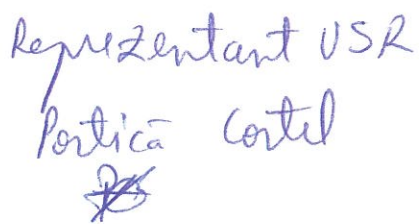 Reprezentant USR
Portică Costel